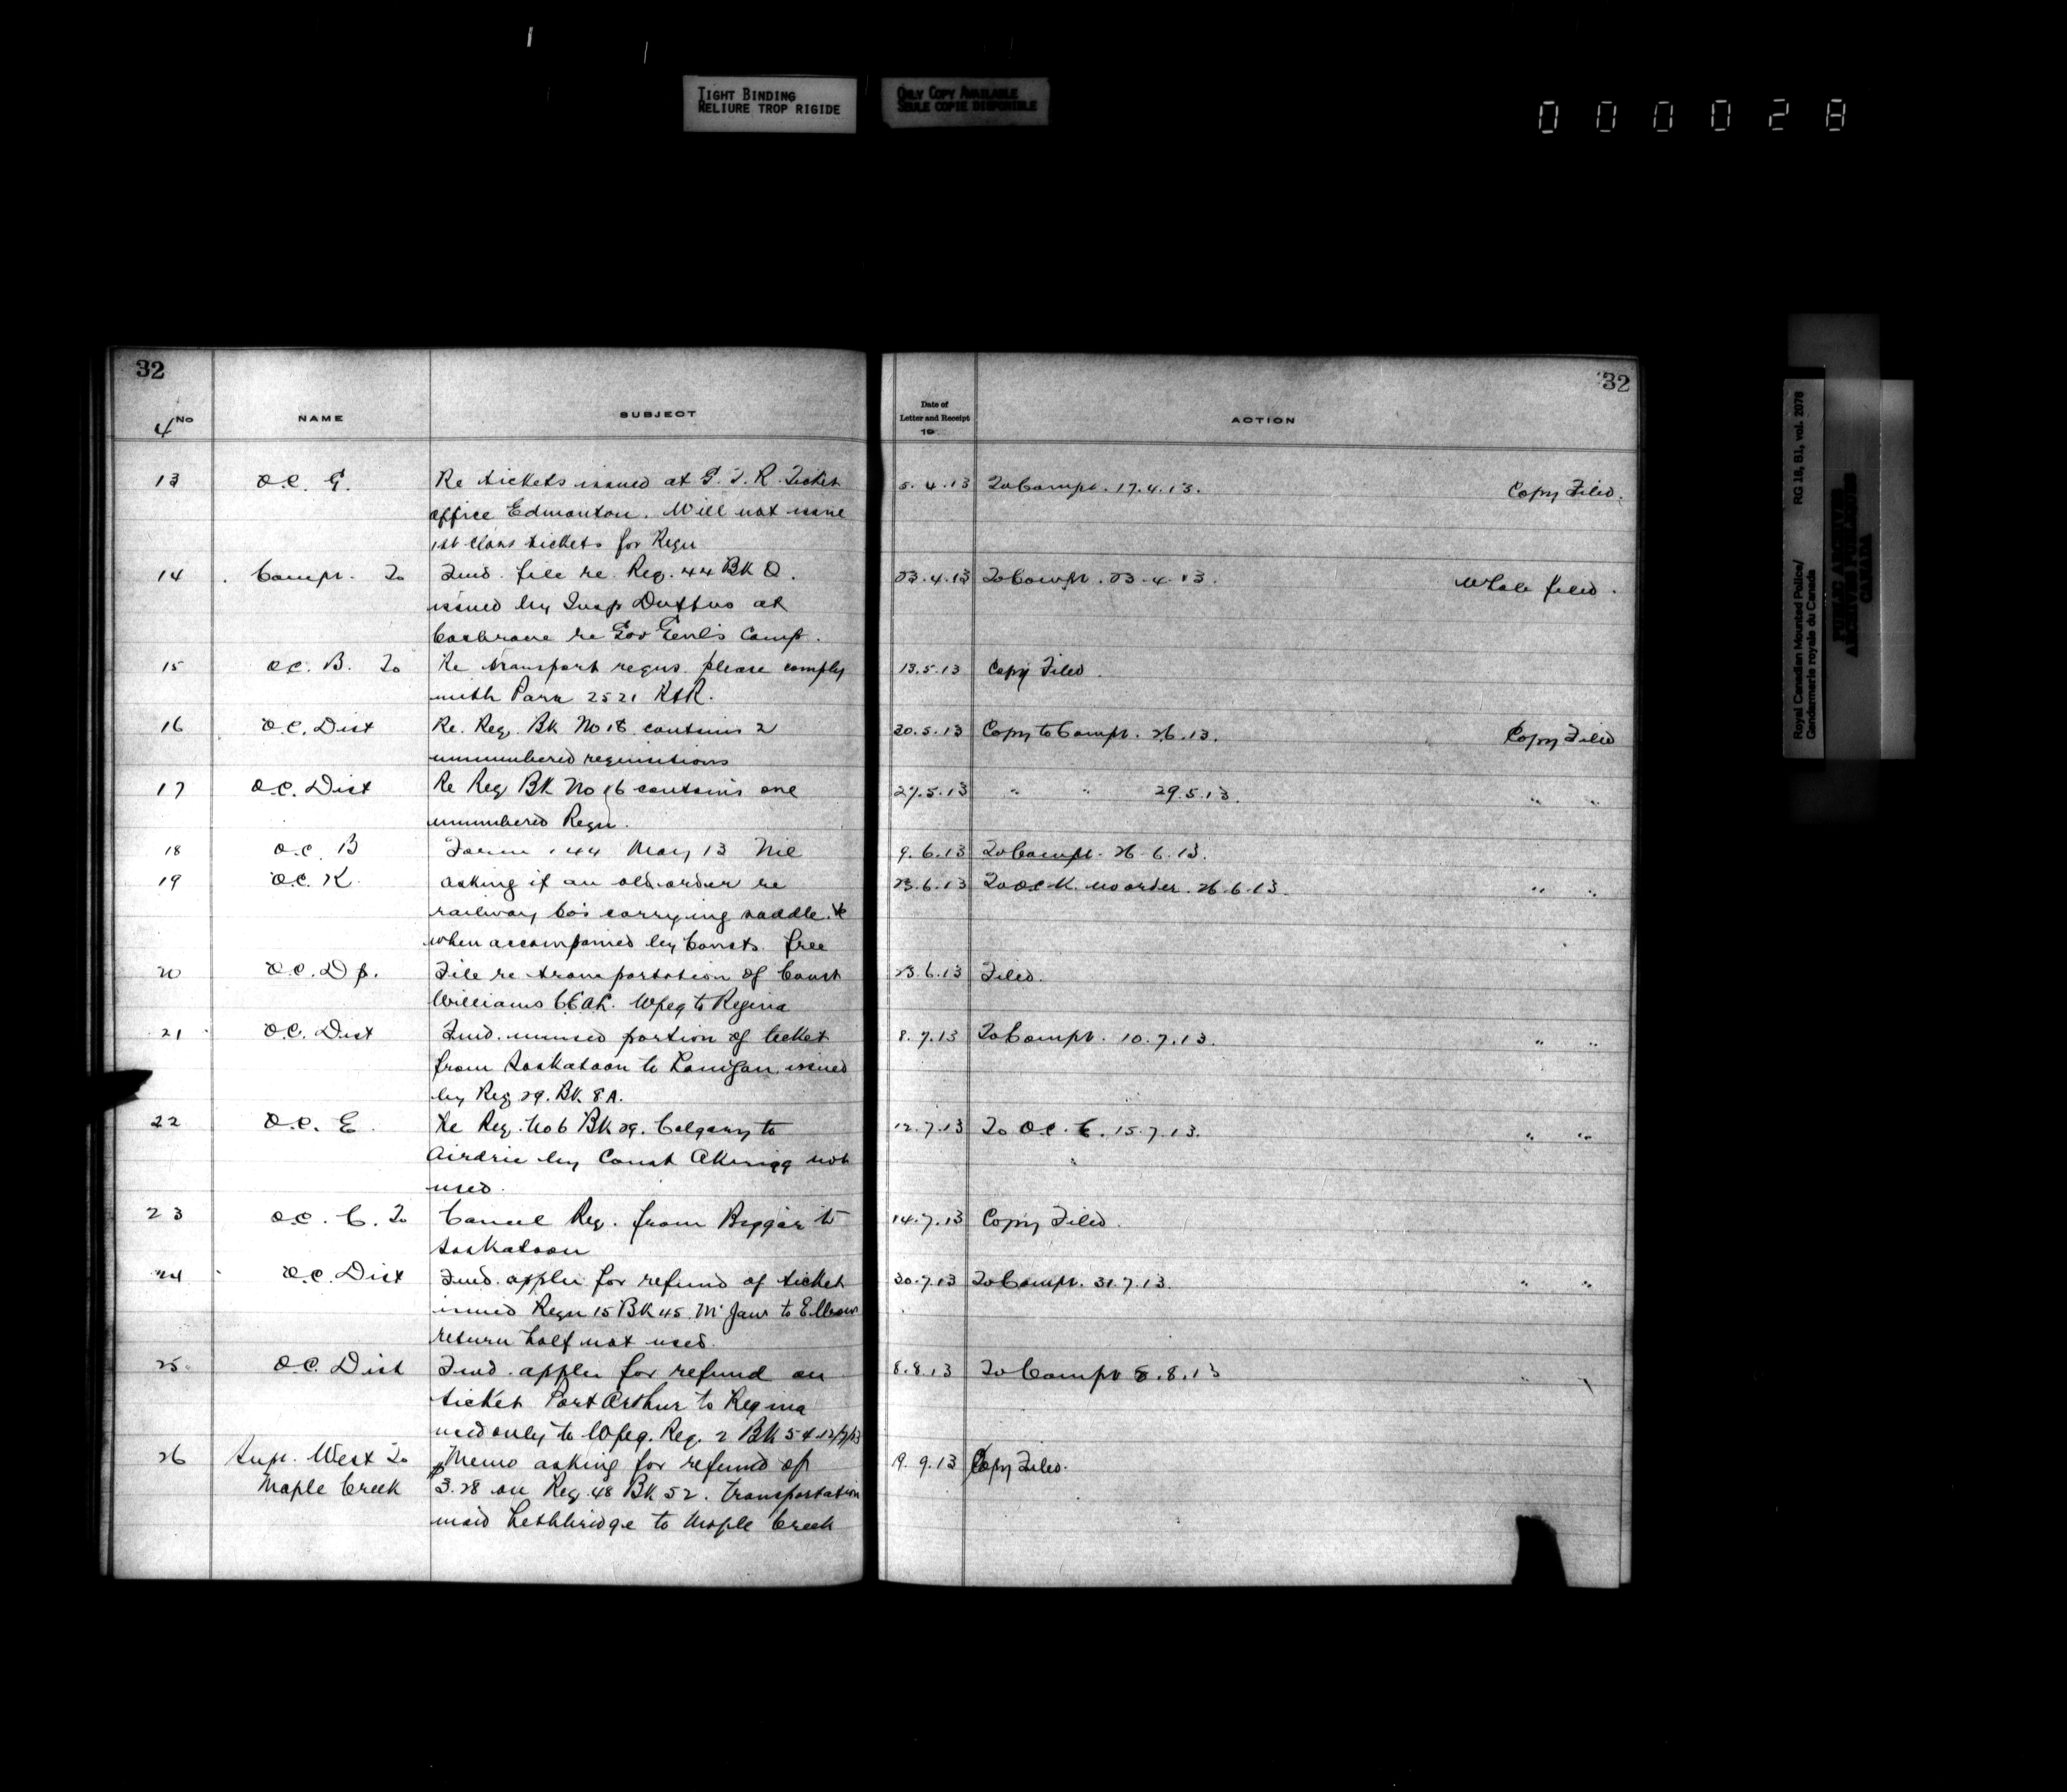 TIGHT BINDING
RELIURE TROP RIGIDE
ONLY COPY AVAILABLE
SEULE COPIE DISPONIBLE
000028
32
4 No NAME SUBJECT
13 O.C. G. Re tickets issued at G.T.R. Ticket
office Edmonton. Will not issue
1st Class tickets for Reqn
14 Compt. To Fwd. file re. Req. 44 Bk Q.
issued by Insp Duffus at
Cochrane re Gov Genl's Camp.
15 O.C. B. To Re transport reqns please comply
with Para 2521 R&R.
16 O.C. Dist Re. Req. Bk No 18 contains 2
unnumbered requisitions
17 O.C. Dist Re Req Bk No 16 contains one
unnumbered Reqn.
18 O.C. B Form 144 May 13 Nil
19 O.C. K. asking if an old order re
railway Co's carrying saddle &c
when accompanied by Consts. free
20 O.C. Dp. File re transportation of Const
Williams C.E.A.L. Wpeg to Regina
21 O.C. Dist Fwd. unused portion of ticket
from Saskatoon to Lanigan issued
by Req 29. Bk 8A.
22 O.C. E. Re Req. No 6 Bk 29. Calgary to
Airdrie by Const Akrigg not
used.
23 O.C. C. To Cancel Req. from Biggar to
Saskatoon
24 O.C. Dist Fwd. appln for refund of ticket
issued Reqn 15 Bk 45 M Jaw to Elbow
return half not used.
25. O.C. Dist Fwd. appln for refund on
ticket Port Arthur to Regina
used only to Wpeg. Req. 2 Bk 54 12/7/13
26 Supt. West To Memo asking for refund of
Maple Creek $3.28 on Req 48 Bk 52. transportation
maid Lethbridge to Maple Creek
32
Date of
Letter and Receipt
19
ACTION
5.4.13 To Compt. 17.4.13. Copy Filed.
23.4.13 To Compt. 23.4.13. Whole filed.
13.5.13 Copy Filed.
20.5.13 Copy to Compt. 26.13. Copy Filed
27.5.13 " " 29.5.13. " "
9.6.13 To Compt. 26.6.13.
23.6.13 To O.C. K. no order. 26.6.13. " "
23.6.13 Filed.
8.7.13 To Compt. 10.7.13. " "
12.7.13 To O.C. E. 15.7.13. " "
14.7.13 Copy Filed.
30.7.13 To Compt. 31.7.13. " "
8.8.13 To Compt 8.8.13 " "
9.9.13 Copy Filed.
Royal Canadian Mounted Police/ RG 18, B1, vol. 2078
Gendarmerie royale du Canada
PUBLIC ARCHIVES
ARCHIVES PUBLIQUES
CANADA